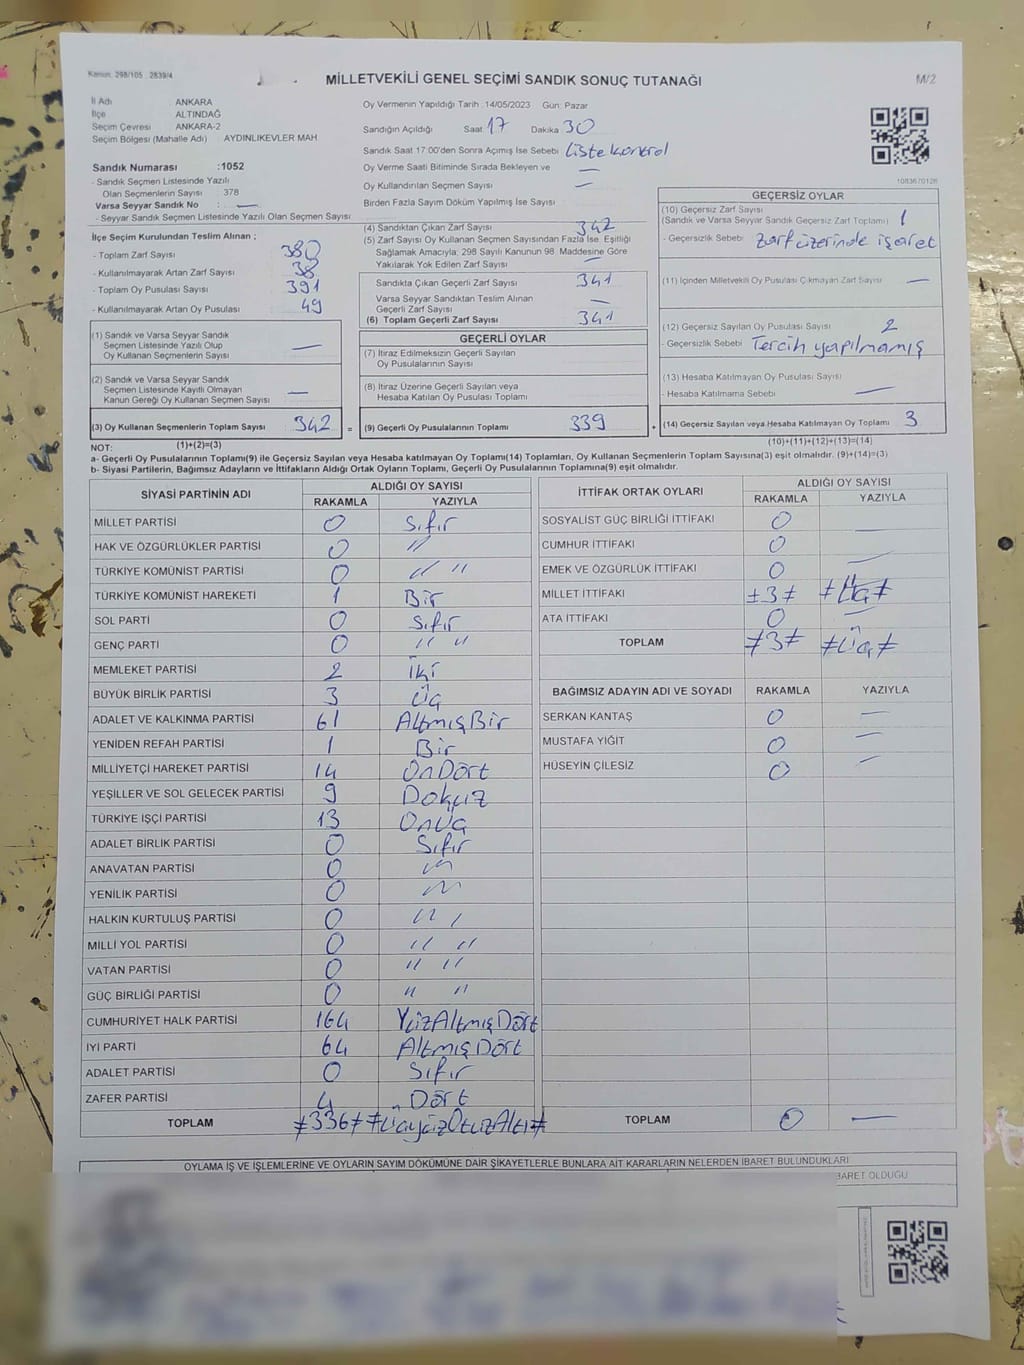 Kanun: 298/105 , 2839/4
MİLLETVEKİLİ GENEL SEÇİMİ SANDIK SONUÇ TUTANAĞI
M/2
İl Adı : ANKARA
İlçe : ALTINDAĞ
Seçim Çevresi : ANKARA-2
Seçim Bölgesi (Mahalle Adı) : AYDINLIKEVLER MAH.
Oy Vermenin Yapıldığı Tarih :14/05/2023 Gün: Pazar
Sandığın Açıldığı Saat 17 Dakika 30
Sandık Saat 17:00'den Sonra Açımış İse Sebebi Liste kontrol
Oy Verme Saati Bitiminde Sırada Bekleyen ve —
Oy Kullandırılan Seçmen Sayısı —
Birden Fazla Sayım Döküm Yapılmış İse Sayısı
Sandık Numarası :1052
- Sandık Seçmen Listesinde Yazılı
Olan Seçmenlerin Sayısı 378
Varsa Seyyar Sandık No : —
- Seyyar Sandık Seçmen Listesinde Yazılı Olan Seçmen Sayısı
İlçe Seçim Kurulundan Teslim Alınan ;
- Toplam Zarf Sayısı 380
- Kullanılmayarak Artan Zarf Sayısı 38
- Toplam Oy Pusulası Sayısı 391
- Kullanılmayarak Artan Oy Pusulası 49
(1) Sandık ve Varsa Seyyar Sandık
Seçmen Listesinde Yazılı Olup
Oy Kullanan Seçmenlerin Sayısı —
(2) Sandık ve Varsa Seyyar Sandık
Seçmen Listesinde Kayıtlı Olmayan
Kanun Gereği Oy Kullanan Seçmen Sayısı —
(3) Oy Kullanan Seçmenlerin Toplam Sayısı 342 =
(1)+(2)=(3)
(4) Sandıktan Çıkan Zarf Sayısı 342
(5) Zarf Sayısı Oy Kullanan Seçmen Sayısından Fazla İse, Eşitliği
Sağlamak Amacıyla; 298 Sayılı Kanunun 98. Maddesine Göre
Yakılarak Yok Edilen Zarf Sayısı —
Sandıkta Çıkan Geçerli Zarf Sayısı 341
Varsa Seyyar Sandıktan Teslim Alınan
Geçerli Zarf Sayısı —
(6) Toplam Geçerli Zarf Sayısı 341
GEÇERLİ OYLAR
(7) İtiraz Edilmeksizin Geçerli Sayılan
Oy Pusulalarının Sayısı
(8) İtiraz Üzerine Geçerli Sayılan veya
Hesaba Katılan Oy Pusulası Toplamı
(9) Geçerli Oy Pusulalarının Toplamı 339 +
1083670126
GEÇERSİZ OYLAR
(10) Geçersiz Zarf Sayısı
(Sandık ve Varsa Seyyar Sandık Geçersiz Zarf Toplamı) 1
- Geçersizlik Sebebi : Zarf üzerinde işaret
(11) İçinden Milletvekili Oy Pusulası Çıkmayan Zarf Sayısı —
(12) Geçersiz Sayılan Oy Pusulası Sayısı 2
- Geçersizlik Sebebi : Tercih yapılmamış
(13) Hesaba Katılmayan Oy Pusulası Sayısı
- Hesaba Katılmama Sebebi —
(14) Geçersiz Sayılan veya Hesaba Katılmayan Oy Toplamı 3
(10)+(11)+(12)+(13)=(14)
NOT:
a- Geçerli Oy Pusulaları Toplamı(9) ile Geçersiz Sayılan veya Hesaba katılmayan Oy Toplamı(14) Toplamları, Oy Kullanan Seçmenlerin Toplam Sayısına(3) eşit olmalıdır. (9)+(14)=(3)
b- Siyasi Partilerin, Bağımsız Adayların ve İttifakların Aldığı Ortak Oyların Toplamı, Geçerli Oy Pusulalarının Toplamına(9) eşit olmalıdır.
SİYASİ PARTİNİN ADI ALDIĞI OY SAYISI
RAKAMLA YAZIYLA
MİLLET PARTİSİ 0 Sıfır
HAK VE ÖZGÜRLÜKLER PARTİSİ 0 "
TÜRKİYE KOMÜNİST PARTİSİ 0 " "
TÜRKİYE KOMÜNİST HAREKETİ 1 Bir
SOL PARTİ 0 Sıfır
GENÇ PARTİ 0 " "
MEMLEKET PARTİSİ 2 İki
BÜYÜK BİRLİK PARTİSİ 3 Üç
ADALET VE KALKINMA PARTİSİ 61 AltmışBir
YENİDEN REFAH PARTİSİ 1 Bir
MİLLİYETÇİ HAREKET PARTİSİ 14 OnDört
YEŞİLLER VE SOL GELECEK PARTİSİ 9 Dokuz
TÜRKİYE İŞÇİ PARTİSİ 13 OnÜç
ADALET BİRLİK PARTİSİ 0 Sıfır
ANAVATAN PARTİSİ 0 "
YENİLİK PARTİSİ 0 "
HALKIN KURTULUŞ PARTİSİ 0 " '
MİLLİ YOL PARTİSİ 0 " "
VATAN PARTİSİ 0 " "
GÜÇ BİRLİĞİ PARTİSİ 0 " "
CUMHURİYET HALK PARTİSİ 164 YüzAltmışDört
İYİ PARTİ 64 AltmışDört
ADALET PARTİSİ 0 Sıfır
ZAFER PARTİSİ 4 Dört
TOPLAM ≠336≠ ≠ÜçyüzOtuzAltı≠
İTTİFAK ORTAK OYLARI ALDIĞI OY SAYISI
RAKAMLA YAZIYLA
SOSYALİST GÜÇ BİRLİĞİ İTTİFAKI 0 —
CUMHUR İTTİFAKI 0
EMEK VE ÖZGÜRLÜK İTTİFAKI 0 —
MİLLET İTTİFAKI ≠3≠ ≠Üç≠
ATA İTTİFAKI 0 —
TOPLAM ≠3≠ ≠Üç≠
BAĞIMSIZ ADAYIN ADI VE SOYADI RAKAMLA YAZIYLA
SERKAN KANTAŞ 0 —
MUSTAFA YİĞİT 0 —
HÜSEYİN ÇİLESİZ 0 —
TOPLAM 0 —
OYLAMA İŞ VE İŞLEMLERİNE VE OYLARIN SAYIM DÖKÜMÜNE DAİR ŞİKAYETLERLE BUNLARA AİT KARARLARIN NELERDEN İBARET BULUNDUKLARI
BARET OLDUĞU